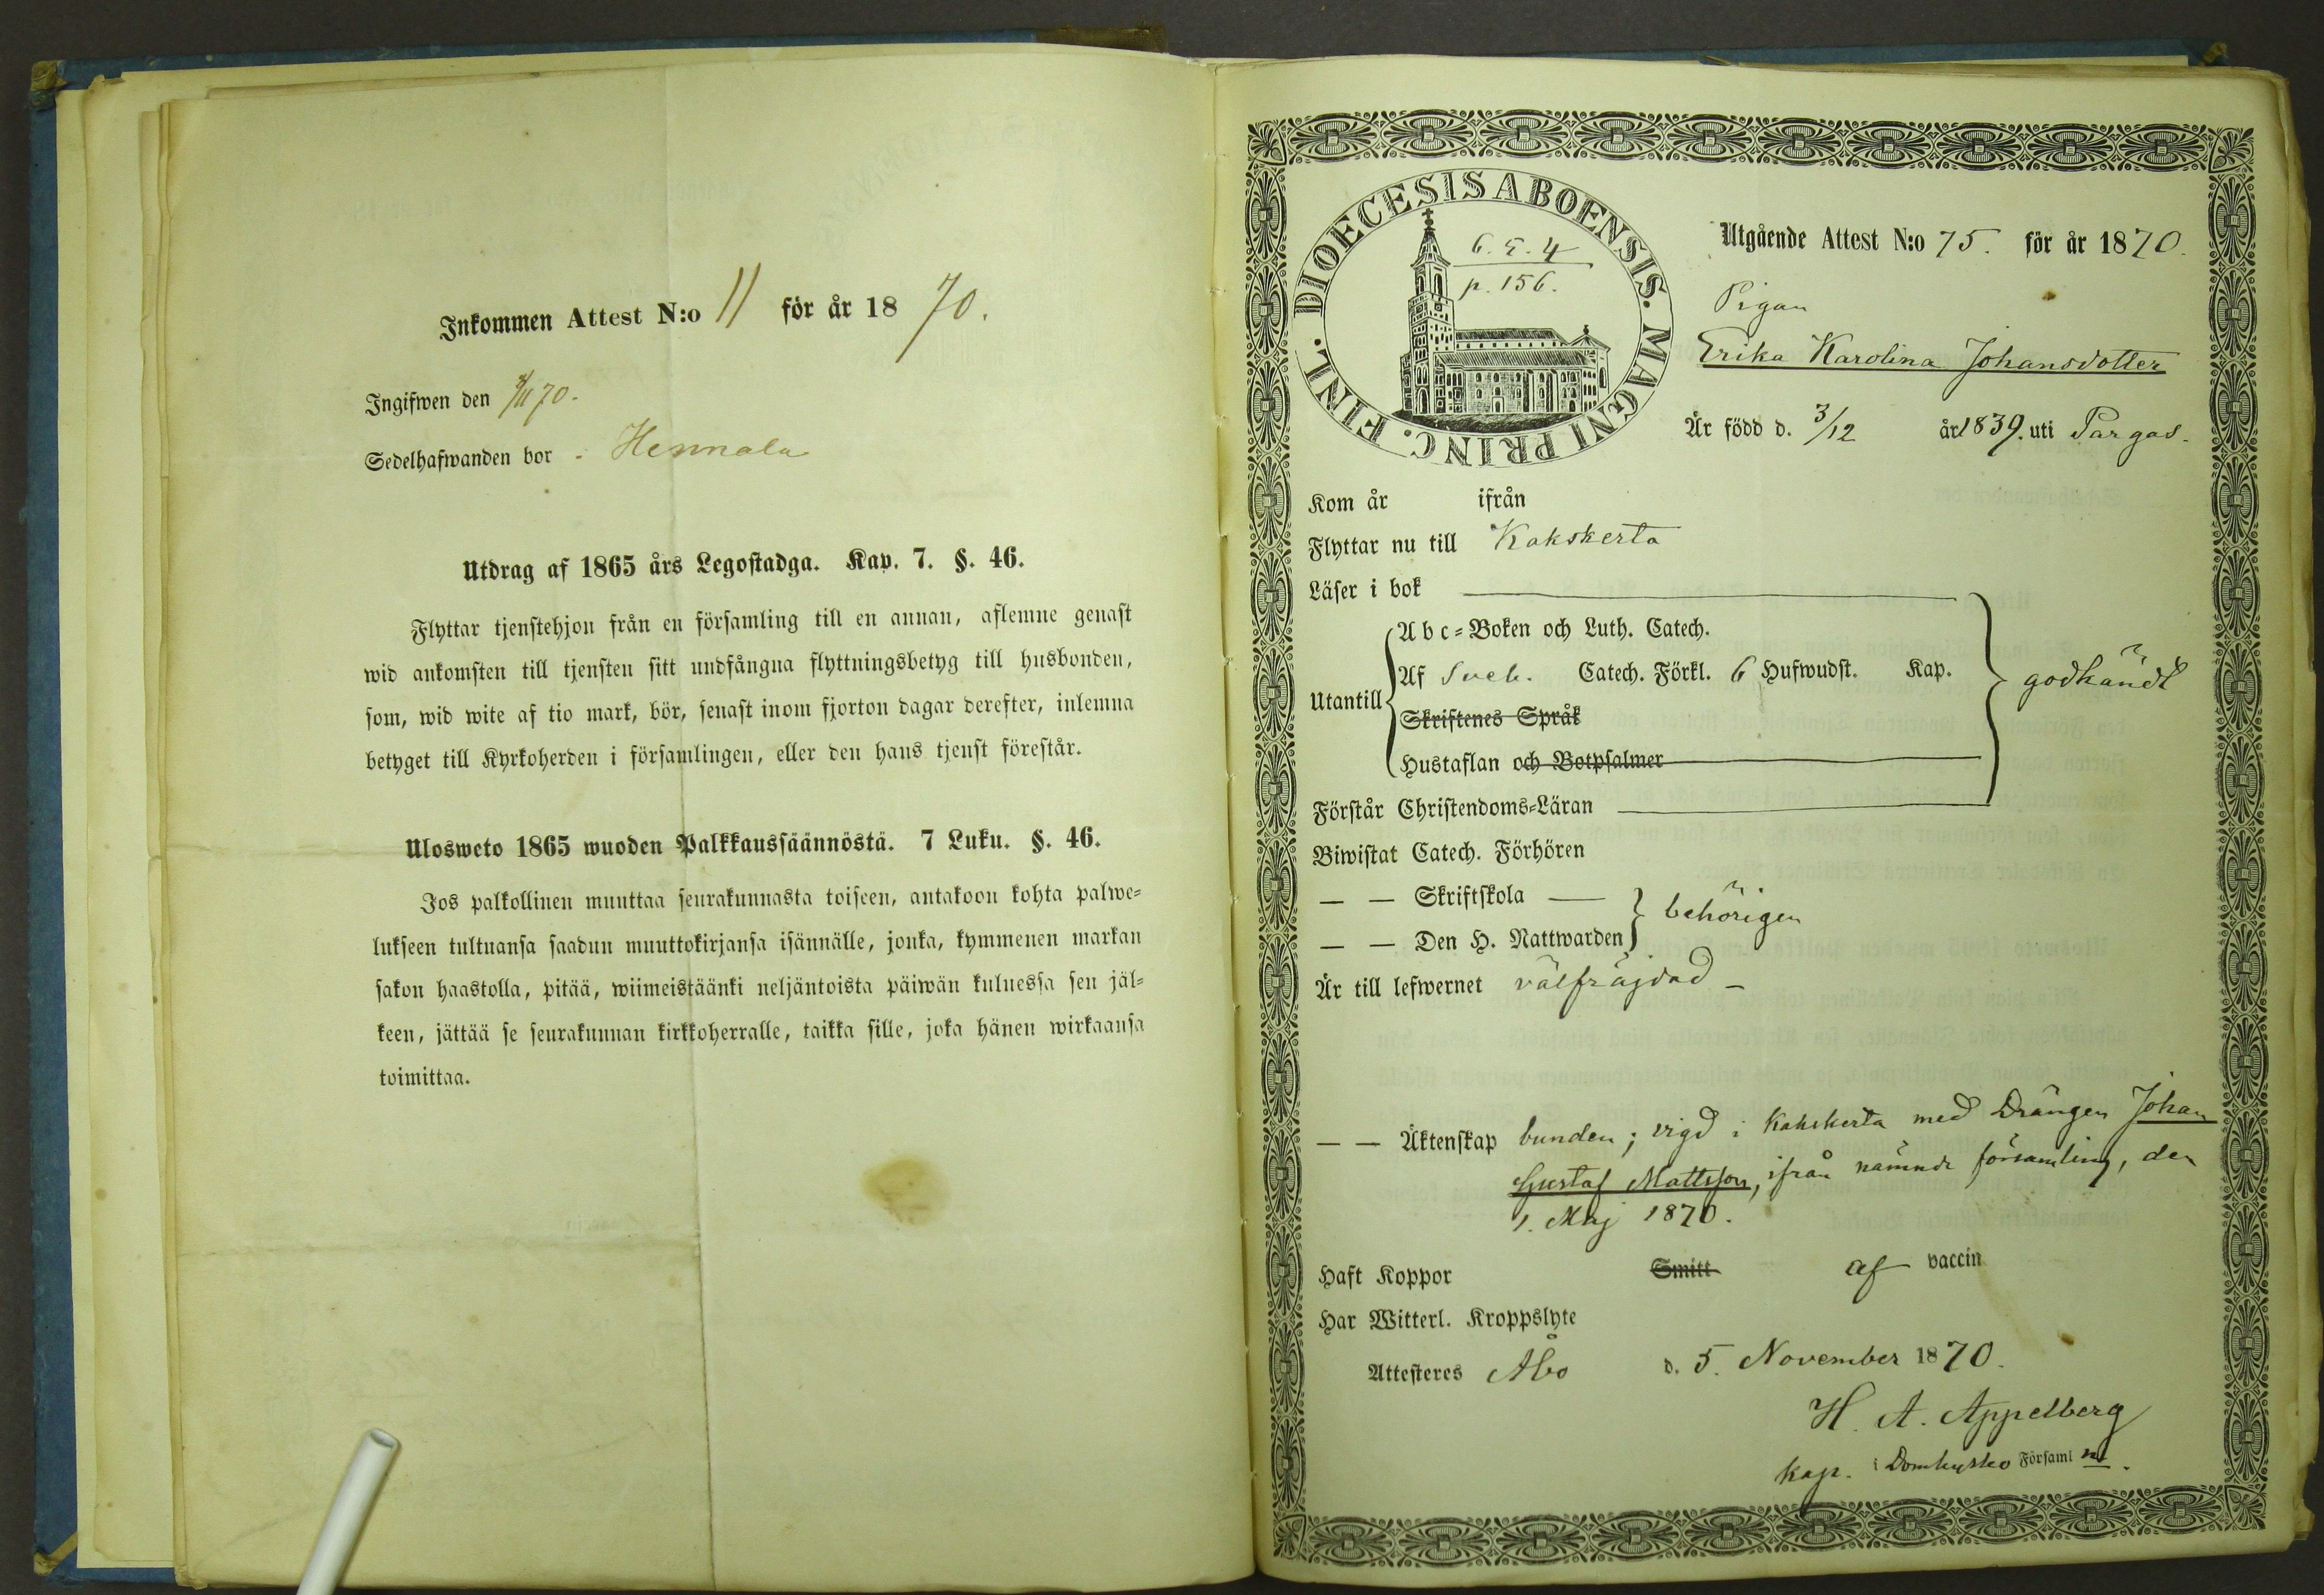 Inkommen Attest N:o 11 för år 1870.
Ingifwen den /11 70.
Sedelhafwanden bor Hennala
Utdrag af 1865 års Legostadga. Kap. 7. §. 46.
Flyttar tjenstehjon från en församling till en annan, aflemne genast
wid ankomsten till tjensten sitt undfångna flyttningsbetyg till husbonden,
som, wid wite af tio mark, bör, senast inom fjorton dagar derefter, inlemna
betyget till Kyrkoherden i församlingen, eller den hans tjenst förestår.
Ulosweto 1865 wuoden Palkkaussäännöstä. 7 Luku. §. 46.
Jos palkollinen muuttaa seurakunnasta toiseen, antakoon kohta palwe-
lukseen tultuansa saadun muuttokirjansa isännälle, jonka, kymmenen markan
sakon haastolla, pitää, wiimeistäänki neljäntoista päiwän kuluessa sen jäl-
keen, jättää se seurakunnan kirkkoherralle, taikka sille, joka hänen wirkaansa
toimittaa.
DIOECESIS ABOENSIS. MAGNI PRINC. FINL.
p. 156.
Utgående Attest N:o 75. för år 1870.
Pigan
Erika Karolina Johansdotter
Är född d. 3/12 år 1839. uti Pargas.
Kom år ifrån
Flyttar nu till Kakskerta
Läser i bok
Utantill
Abc-Boken och Luth. Catech.
Af Sveb. Catech. Förkl. 6 Hufwudst. Kap.
Skriftenes Språk
Hustaflan och Botpsalmer
godkändt
Förstår Christendoms-Läran
Biwistat Catech. Förhören
— — Skriftskola —
— — Den H. Nattwarden
behörigen
Är till lefwernet välfräjdad -
— — Äktenskap bunden; vigd i Kakskerta med Drängen Johan
Gustaf Mattsson, ifrån nämnde församling, den
1. Maj 1870.
Haft Koppor Smitt af vaccin
Har Witterl. Kroppslyte
Attesteres Åbo d. 5. November 1870.
H. A. Appelberg
Kap. i Domkyrko Församl n.